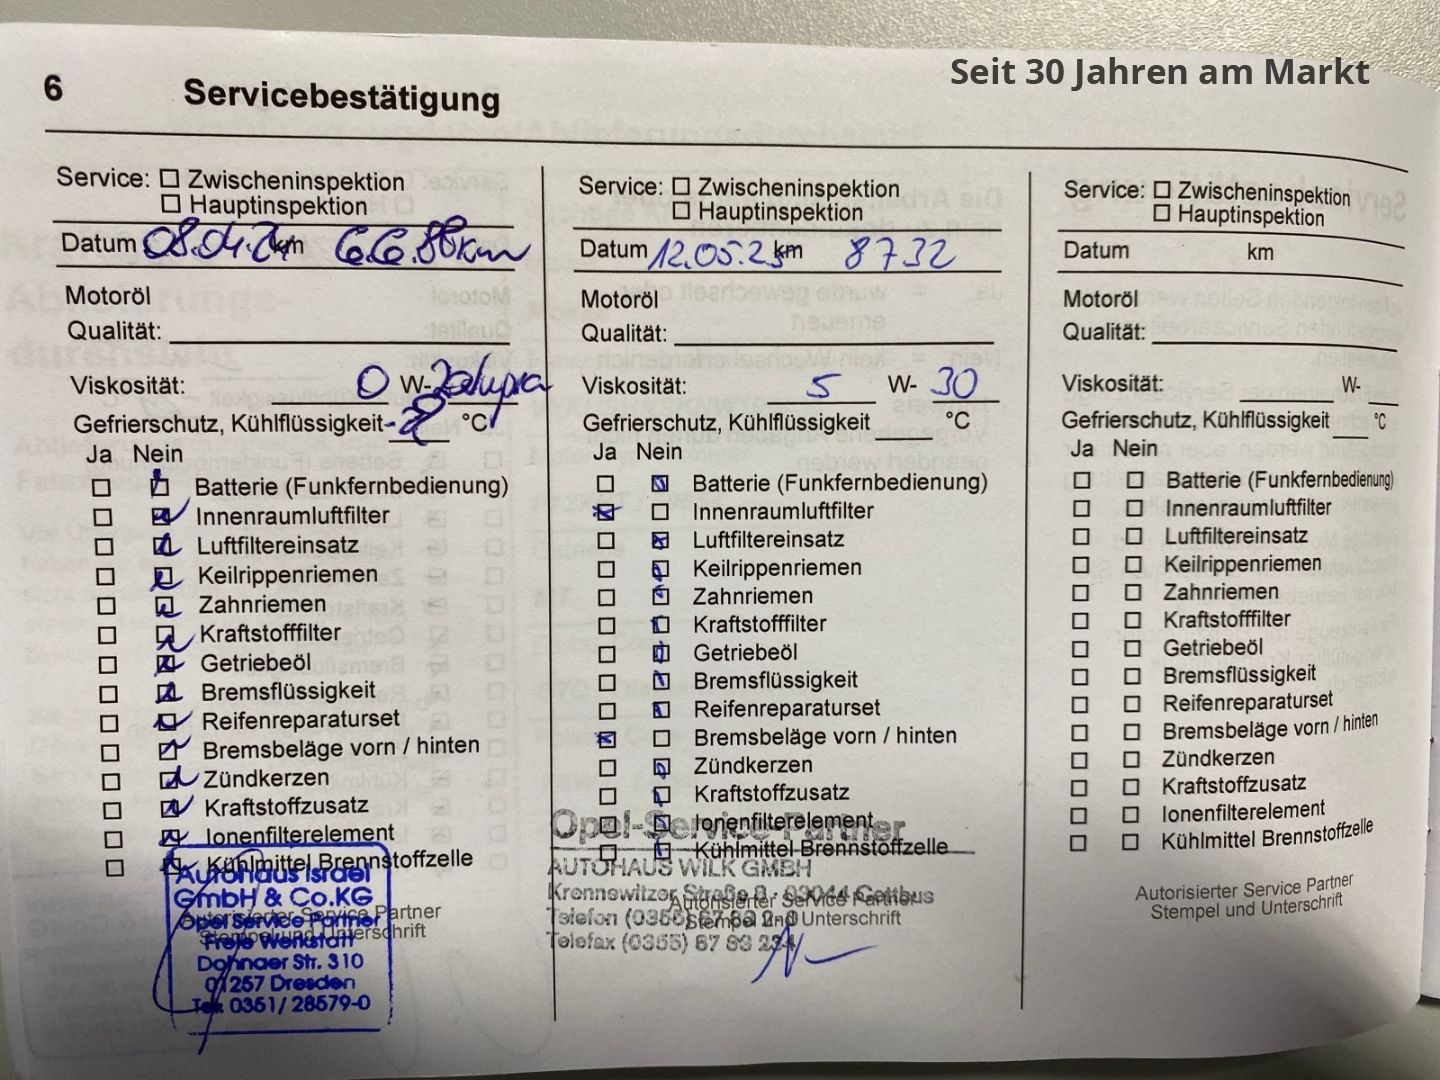 Seit 30 Jahren am Markt
6 Servicebestätigung
Service: Zwischeninspektion
Hauptinspektion
Datum 08.04.24 km
Motoröl
Qualität:
Viskosität: 0 W-
Gefrierschutz, Kühlflüssigkeit °C
Ja Nein
Batterie (Funkfernbedienung)
Innenraumluftfilter
Luftfiltereinsatz
Keilrippenriemen
Zahnriemen
Kraftstofffilter
Getriebeöl
Bremsflüssigkeit
Reifenreparaturset
Bremsbeläge vorn / hinten
Zündkerzen
Kraftstoffzusatz
Ionenfilterelement
Kühlmittel Brennstoffzelle
Autorisierter Service Partner
Stempel und Unterschrift
Autohaus Israel
GmbH & Co.KG
Opel Service Partner
Freie Werkstatt
Dohnaer Str. 310
01257 Dresden
Tel. 0351/ 28579-0
Service: Zwischeninspektion
Hauptinspektion
Datum 12.05.25 km 8732
Motoröl
Qualität:
Viskosität: 5 W- 30
Gefrierschutz, Kühlflüssigkeit °C
Ja Nein
Batterie (Funkfernbedienung)
Innenraumluftfilter
Luftfiltereinsatz
Keilrippenriemen
Zahnriemen
Kraftstofffilter
Getriebeöl
Bremsflüssigkeit
Reifenreparaturset
Bremsbeläge vorn / hinten
Zündkerzen
Kraftstoffzusatz
Ionenfilterelement
Kühlmittel Brennstoffzelle
Autorisierter Service Partner
Stempel und Unterschrift
Opel-Service-Partner
AUTOHAUS WILK GMBH
Krennewitzer Straße 8 · 03044 Cottbus
Telefon (0355)
Telefax (0355) 87 83 224
Service: Zwischeninspektion
Hauptinspektion
Datum km
Motoröl
Qualität:
Viskosität: W-
Gefrierschutz, Kühlflüssigkeit °C
Ja Nein
Batterie (Funkfernbedienung)
Innenraumluftfilter
Luftfiltereinsatz
Keilrippenriemen
Zahnriemen
Kraftstofffilter
Getriebeöl
Bremsflüssigkeit
Reifenreparaturset
Bremsbeläge vorn / hinten
Zündkerzen
Kraftstoffzusatz
Ionenfilterelement
Kühlmittel Brennstoffzelle
Autorisierter Service Partner
Stempel und Unterschrift